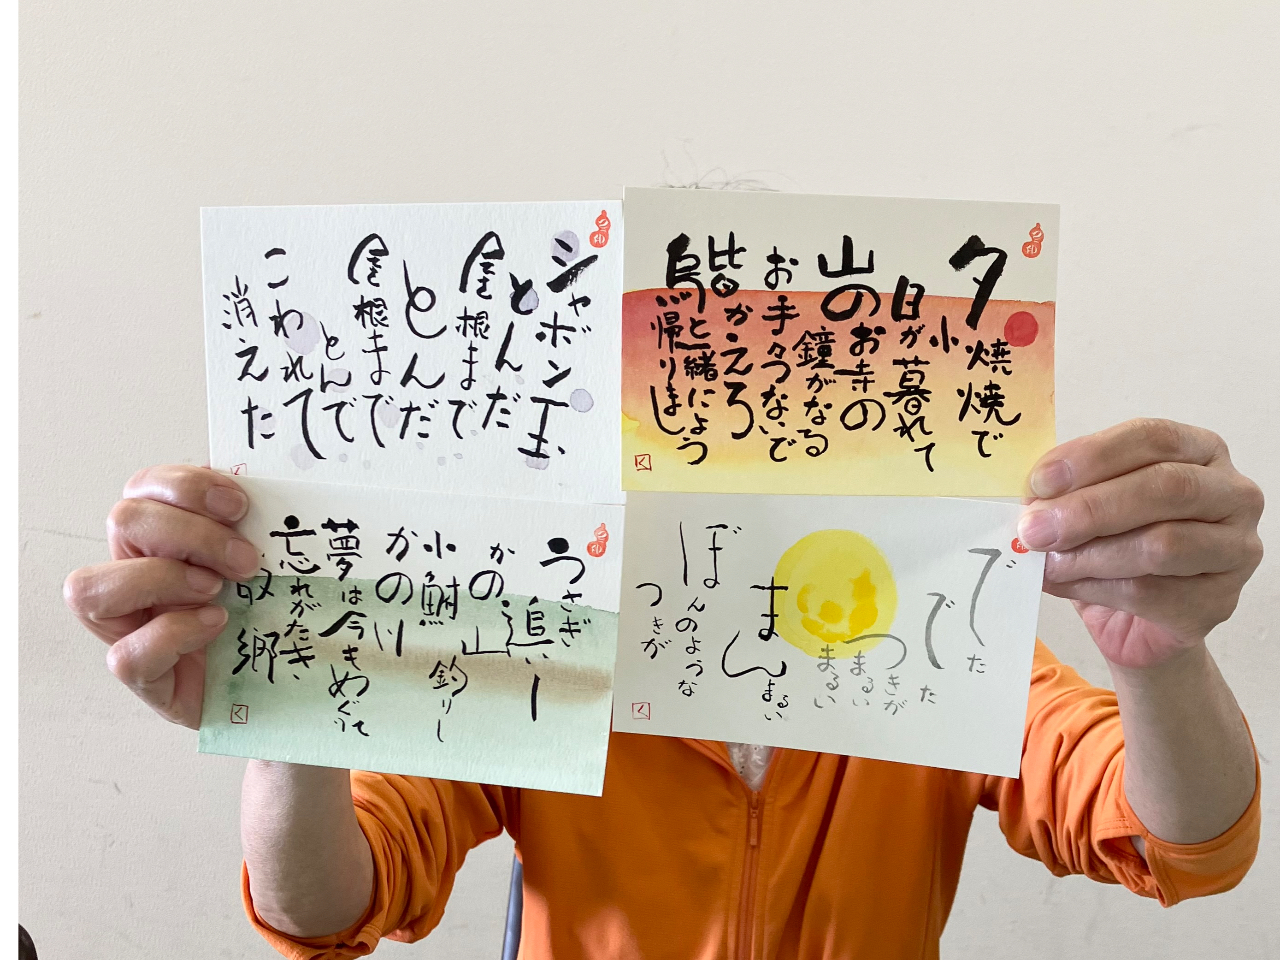 シャボン玉
とんだ
屋根まで
とんだ
屋根まで
とんで
こわれて
消えた
夕焼
小焼で
日が暮れて
山のお寺の
鐘がなる
お手々つないで
皆かえろ
烏と一緒に
帰りましょう
うさぎ
追いし
かの山
小鮒
釣りし
かの川
夢は今も
めぐりて
忘れがたき
故郷
でた
でた
つきが
まるい
まるい
まんまるい
ぼんのような
つきが